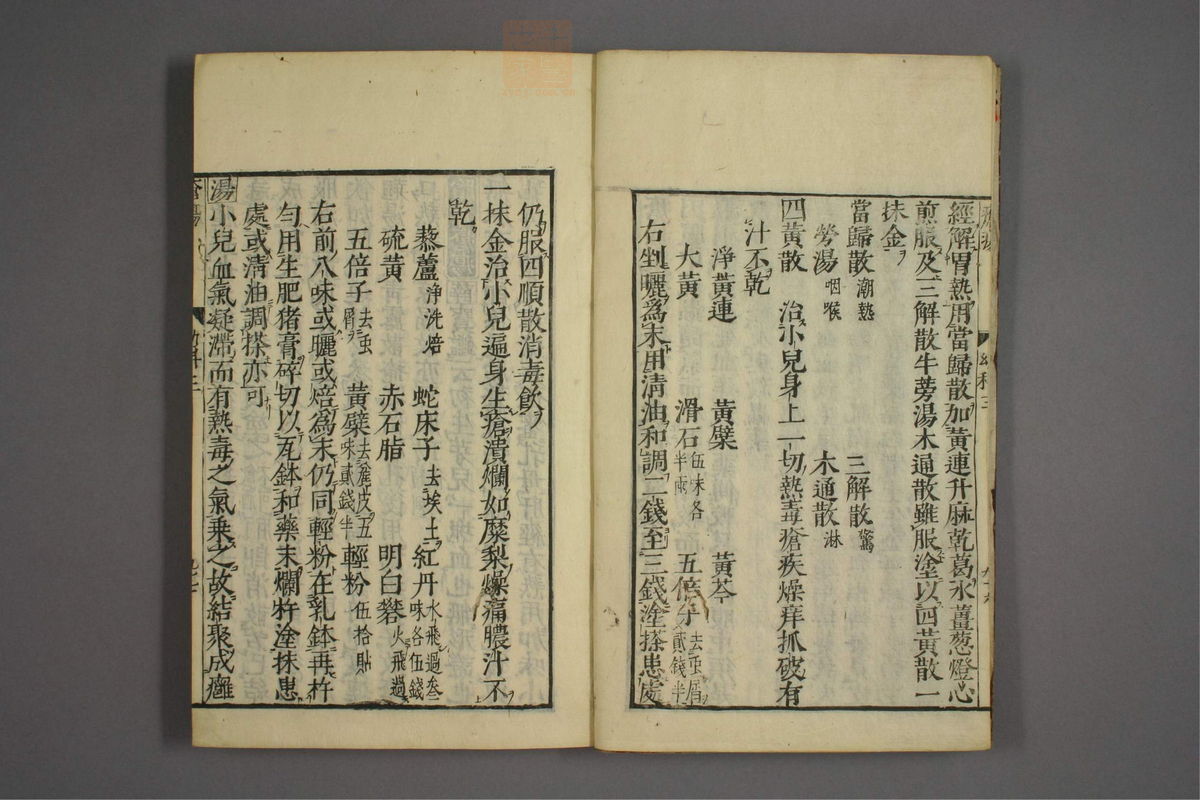 經解胃熱用當歸散加黃連升麻乾葛水薑葱燈心
煎服及三解散牛蒡湯木通散雖服塗以四黃散一
抹金
當歸散潮熱 三解散驚
蒡湯咽喉 木通散淋
四黃散 治小兒身上一切熱毒瘡疾燥痒抓破有
汁不乾
淨黃連 黃櫱 黃芩
大黃 滑石伍味各半兩 五倍子去虫屑貳錢半
右剉曬爲末用清油和調二錢至三錢塗搽患處
仍服四順散消毒飲
一抹金治小兒遍身生瘡潰爛如糜梨燥痛膿汁不
乾
藜蘆淨洗焙 蛇床子去埃土 紅丹水飛過叁味各伍錢
硫黃 赤石脂 明白礬火飛過
五倍子去虫屑 黃櫱去麄皮五味貳錢半 輕粉伍拾貼
右前八味或曬或焙爲末仍同輕粉在乳鉢再杵
勻用生肥猪膏碎切以瓦鉢和藥末爛杵塗抹患
處或清油調搽亦可
湯小兒血氣凝滯而有熱毒之氣乘之故結聚成癰